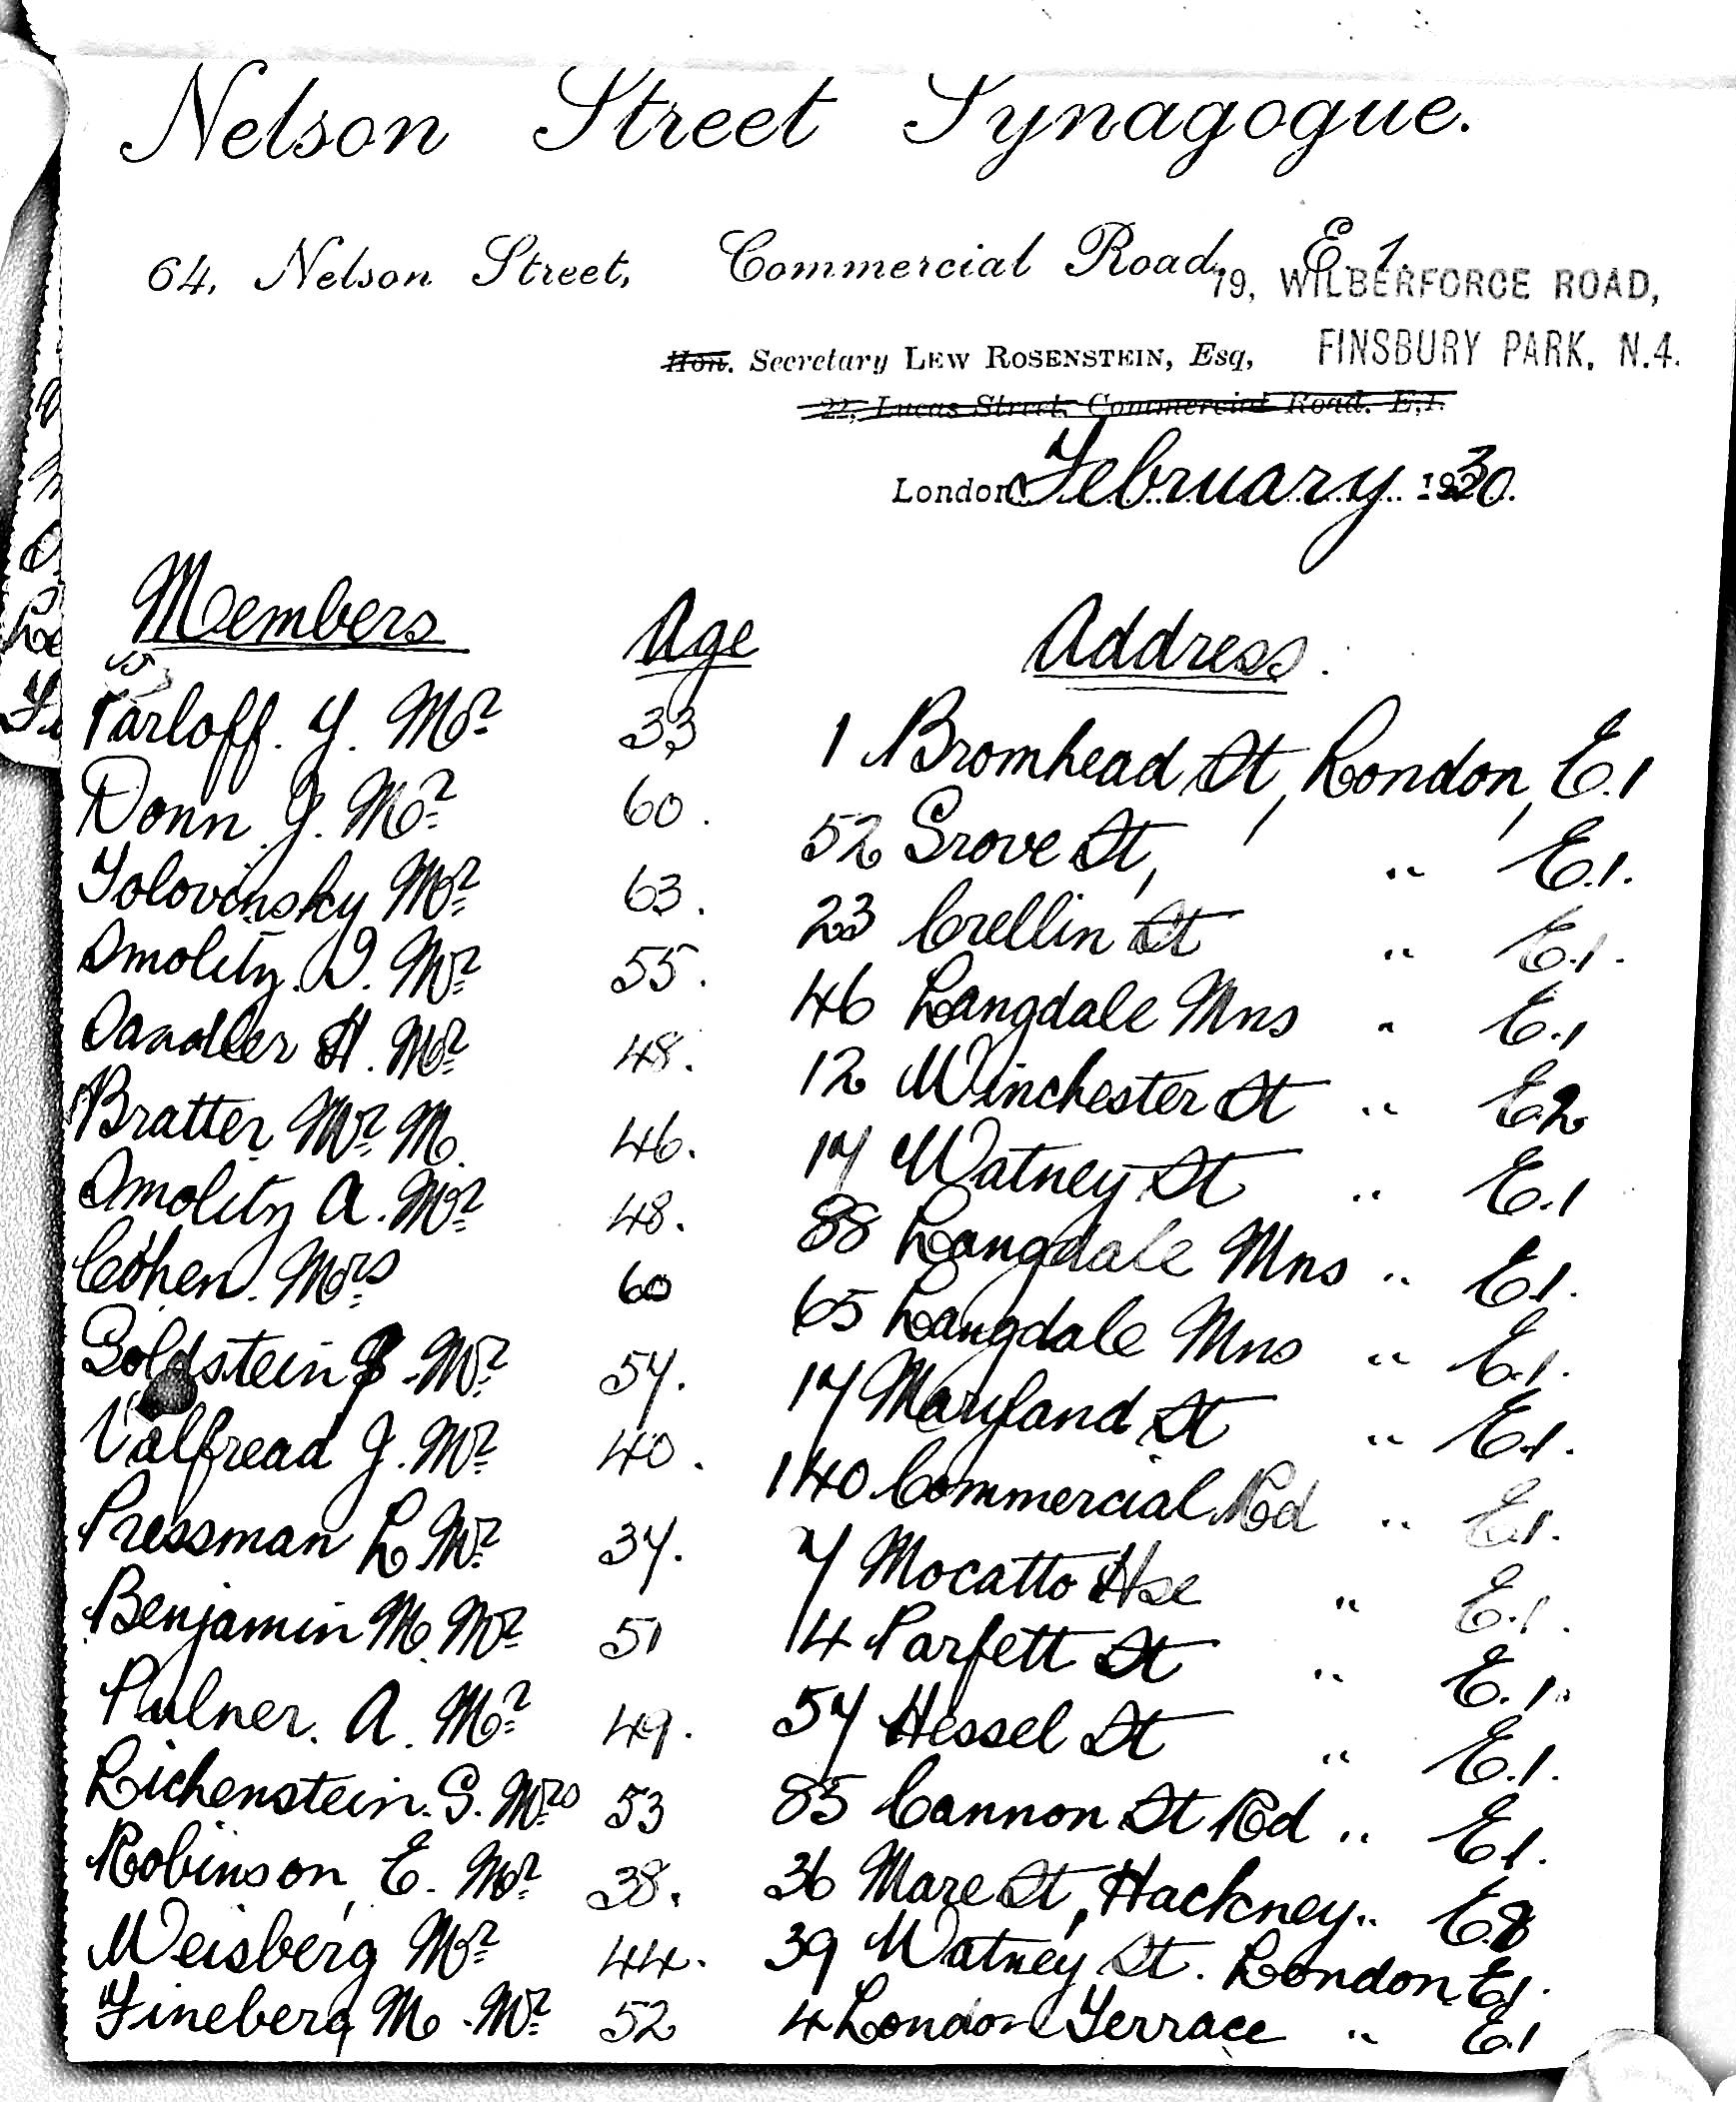 Nelson Street Synagogue.
64, Nelson Street, Commercial Road, E.1.
79, WILBERFORCE ROAD,
Hon. Secretary LEW ROSENSTEIN, Esq, FINSBURY PARK, N.4.
22, Lucas Street, Commercial Road. E.1.
London February 1930.
Members Age Address
Tarloff. Y. Mr 33 1 Bromhead St, London, E.1
Donn J. Mr 60. 52 Grove St, " E.1.
Tolovinsky Mr 63. 23 Crellin St " E.1.
Smolity. D. Mr 55. 46 Langdale Mns " E.1
Sandler H. Mr 48. 12 Winchester St " E2
Bratter Mr M. 46. 17 Watney St " E.1
Smolity A. Mr 48. 88 Langdale Mns " E.1.
Cohen. Mrs 60 65 Langdale Mns " E.1.
Goldstein Mr 57. 17 Maryland St " E.1.
Valfread J. Mr 40. 140 Commercial Rd " E.1.
Pressman L Mr 37. 7 Mocatto Hse " E.1.
Benjamin M. Mr 51 14 Parfett St " E.1.
Pulner. A. Mr 49. 57 Hessel St " E.1.
Lichenstein. S. Mrs 53 85 Cannon St Rd " E.1.
Robinson, E. Mr 38. 36 Mare St, Hackney " E.8
Weisberg Mr 44. 39 Watney St. London E.1.
Fineberg M. Mr 52 4 London Terrace " E.1